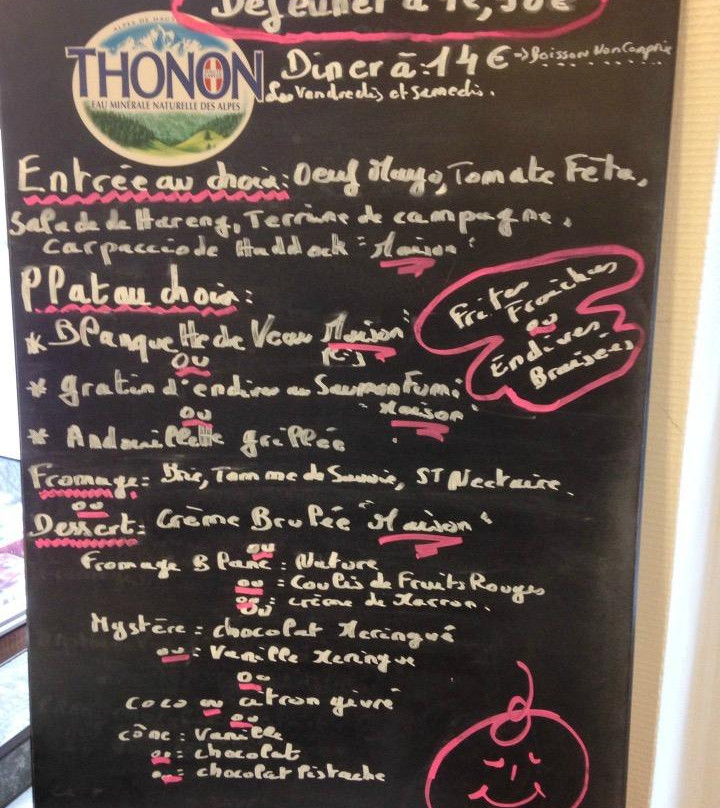 Déjeuner à
ALPES DE HAUTE
THONON
EAU MINÉRALE NATURELLE DES ALPES
Diner à: 14 € => Boisson Non Comprise
Les Vendredis et Samedis.
Entrée au choix: Oeuf Mayo, Tomate Féta,
Salade de Hareng, Terrine de campagne,
Carpaccio de Haddock "Maison"
Plat au choix:
* Blanquette de Veau Maison"
ou
* gratin d'endive au Saumon Fumé
ou "Maison"
* Andouillette grillée
Frites
Fraiches
ou
Endives
Braisées
Fromage: Brie, Tomme de Savoie, ST Nectaire.
ou
Dessert: Crème Brulée "Maison"
ou
Fromage Blanc: Nature
ou: Coulis de Fruits Rouges
ou: crème de Marron.
ou
Mystère: chocolat Meringué
ou: Vanille Meringue
ou
coco ou citron givré
ou
cône: Vanille
ou: chocolat
ou: chocolat Pistache